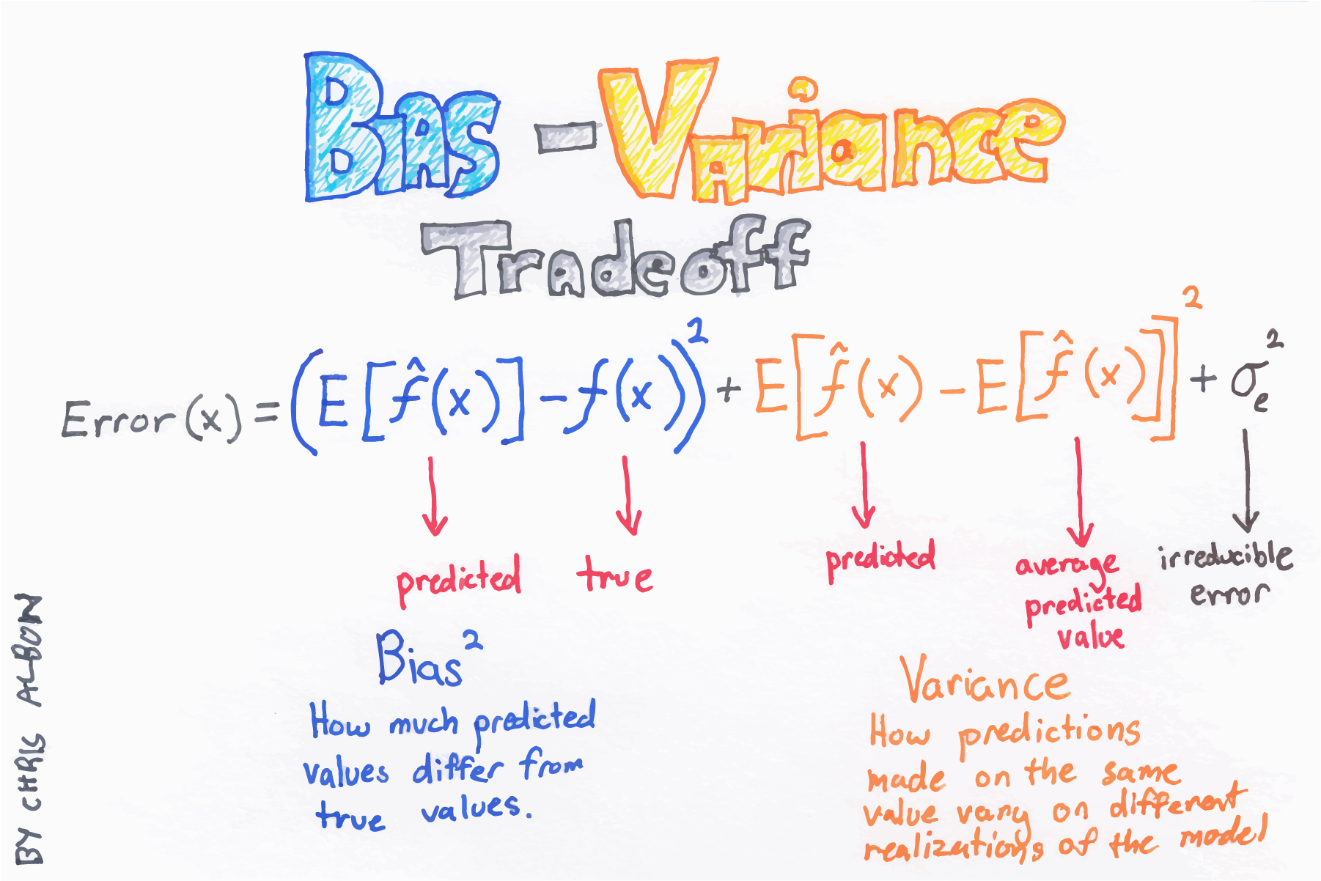 Bias - Variance
Tradeoff
Error(x) = (E[f̂(x)] - f(x))² + E[f̂(x) - E[f̂(x)]]² + σₑ²
predicted
true
predicted
average
predicted
value
irreducible
error
Bias²
How much predicted
values differ from
true values.
Variance
How predictions
made on the same
value vary on different
realizations of the model
BY CHRIS ALBON